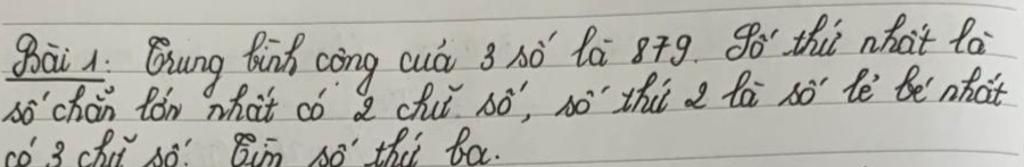 Bài 1: Trung bình cộng cuả 3 số là 879. Số thứ nhất là
số chẵn lớn nhất có 2 chữ số, số thứ 2 là số lẻ bé nhất
có 3 chữ số. Tìm số thứ ba.